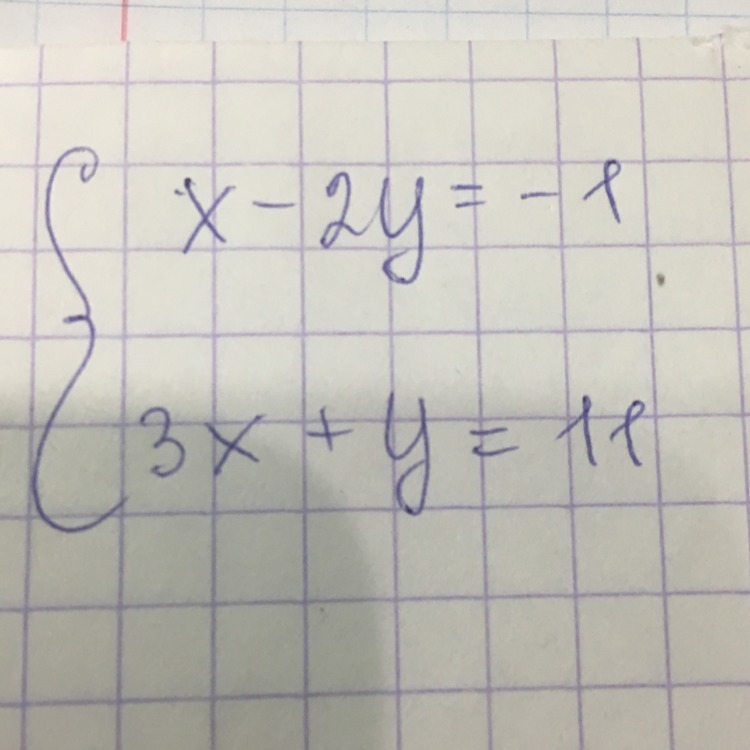 x - 2y = - 1
3x + y = 11